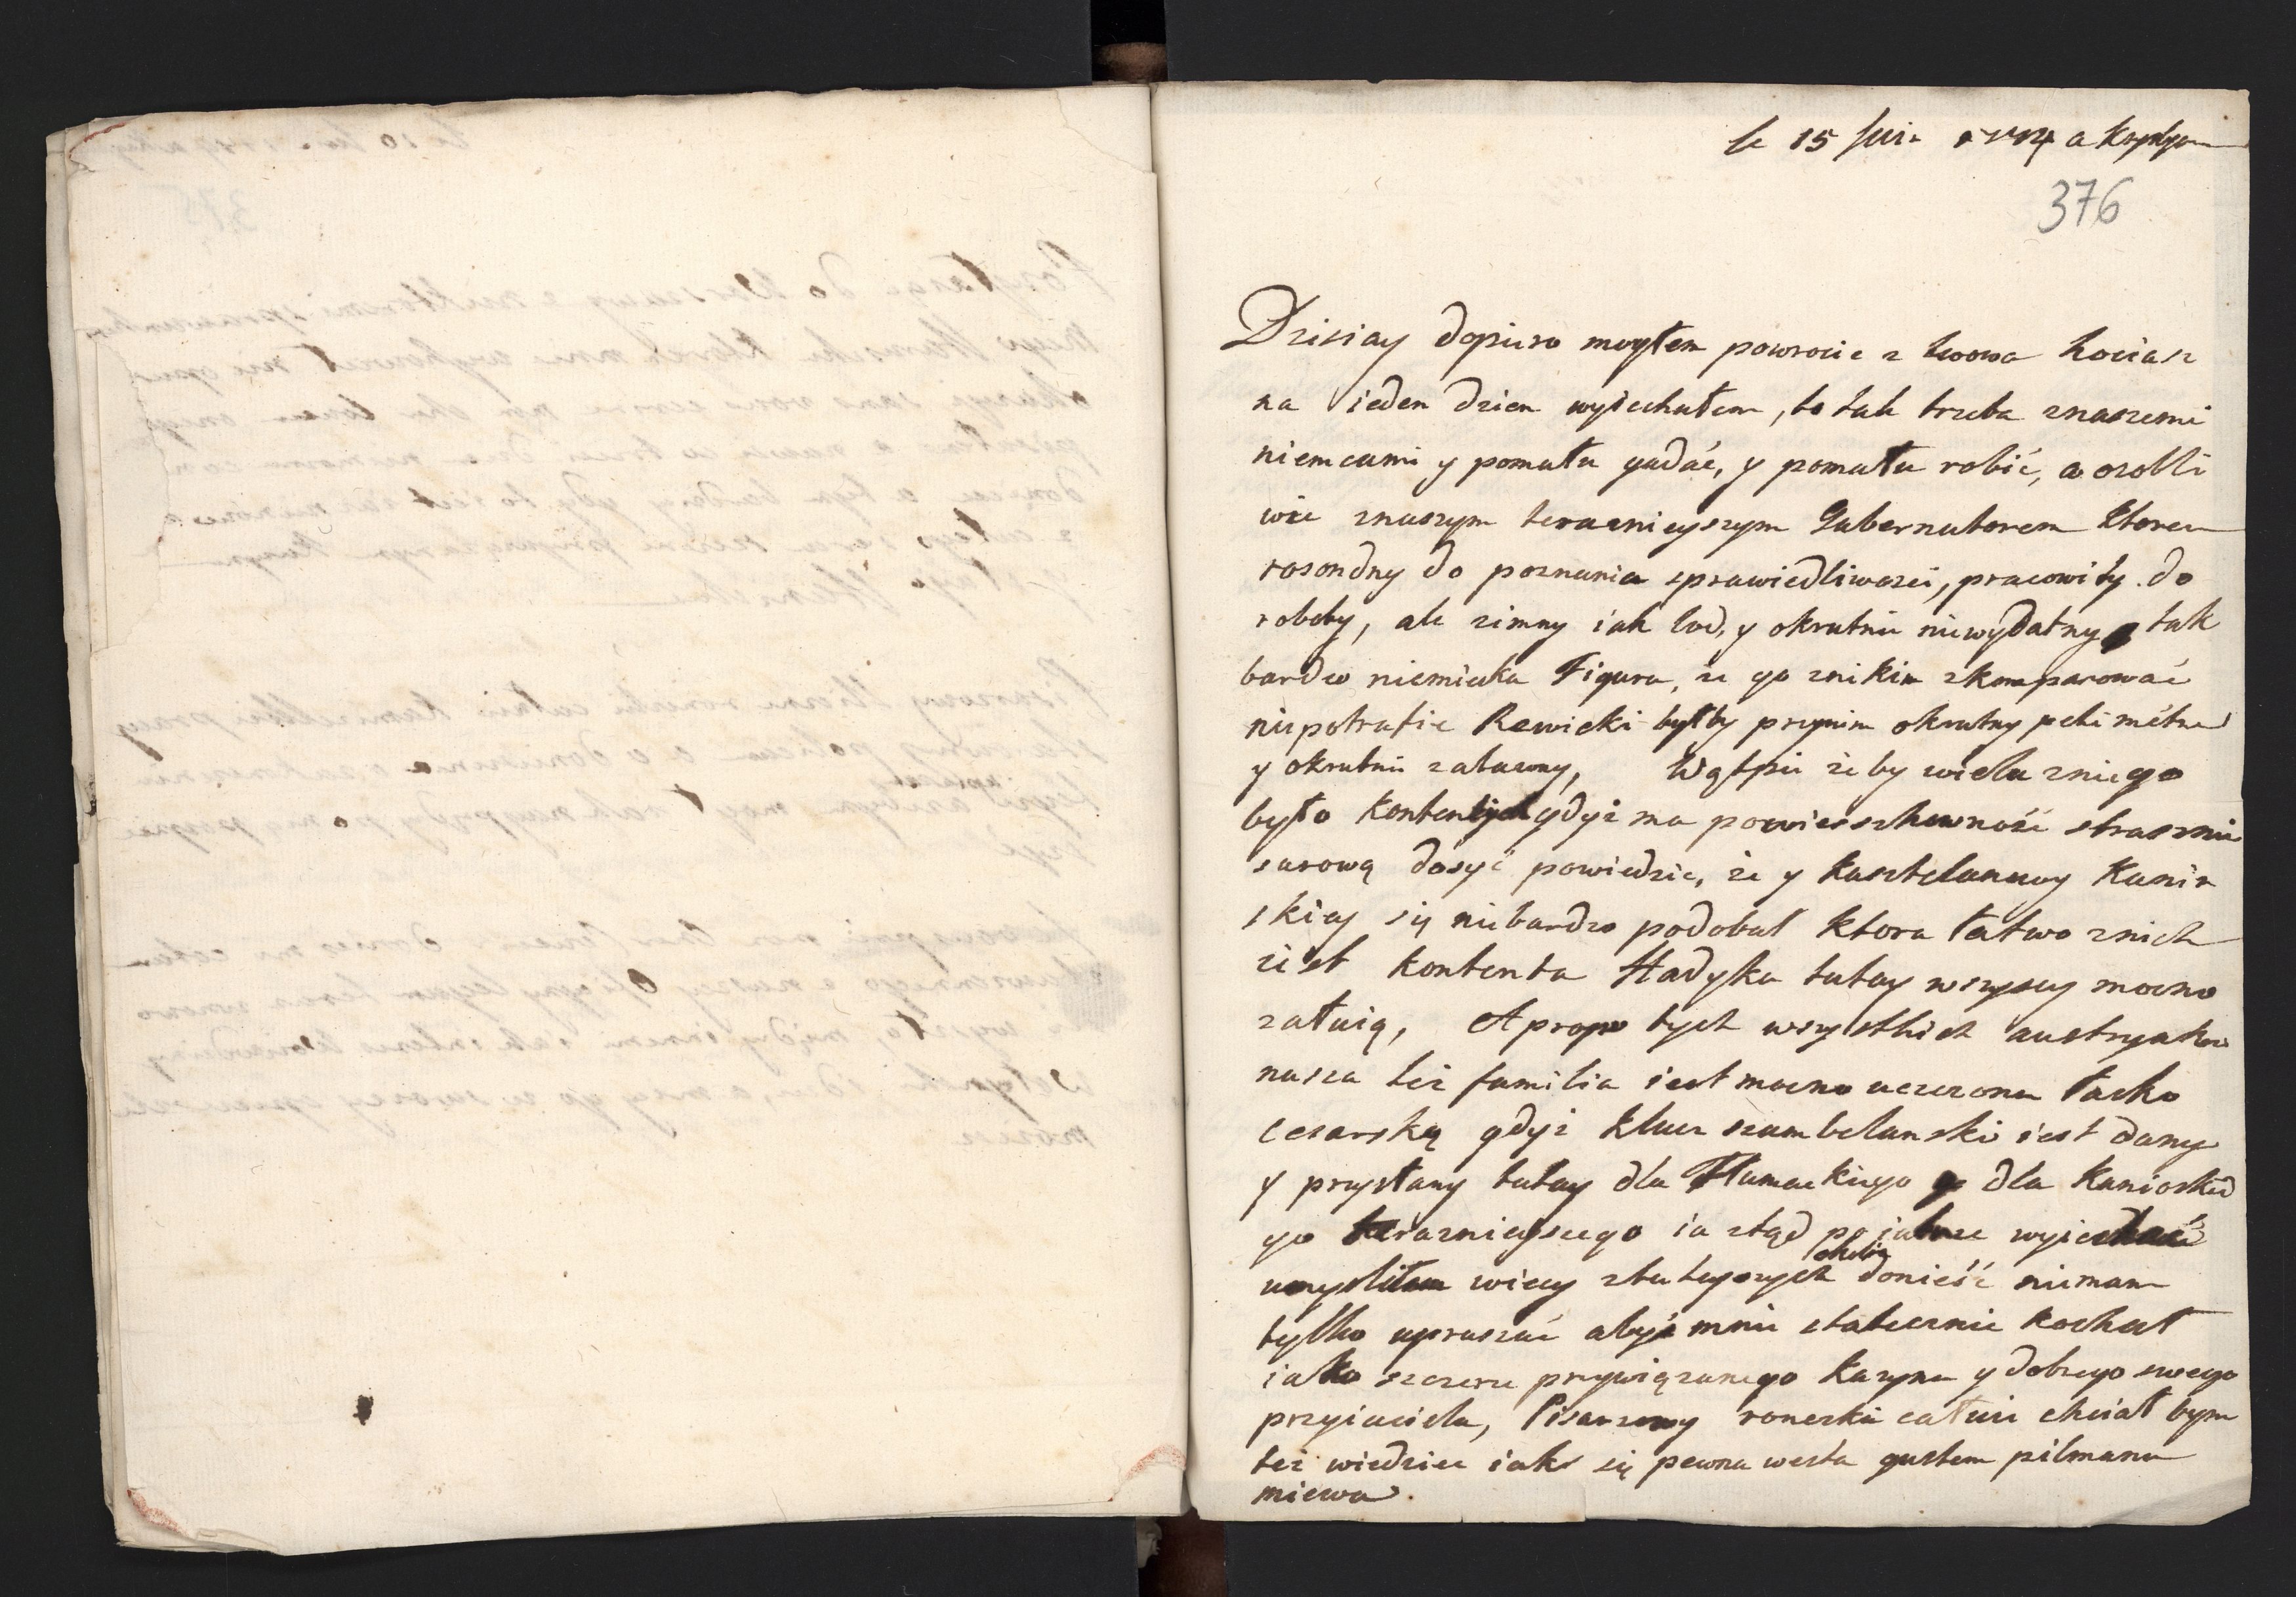 le 15 Juin 1774 a Krystyno
376
Dzisiay dopiuro mogłem powrocic z Lwowa hociasz
na ieden dzien wyiechałem, bo tak trzeba znaszemi
niemcami y pomału gadać, y pomału robić, a osobli
wie znaszym teraznieyszym Gubernatorem ktoren
rosondny do poznania sprawiedliwosci, pracowity do
roboty, ale zimny iak lod, y okrutnie niewydatny tak
bardzo niemiecka Figura, ze go znikim skomparować
niepotrafie Rewicki byłby przynim okrutny peti métre
y okrutnie zabawny, Wątpie zeby wielu zniego
było kontentych gdyz ma powierszhowność strasznie
surową dosyć powiedzic, ze y Kasztelanowy Kamin
skiey się niebardzo podobał ktora łatwo znich
iest kontenta Hadyka tutay wszyscy mocno
załuią, A propo tych wszystkich austryakow
nasza tez familia iest mocno uczczona łasko
cesarską gdyz klucz szambelanski iest dany
y przysłany tutay dla Tłumackiego y dla Kaniowskie
go teraznieyszego ia ztąd po iutrze wyiechać
umysliłem wiecy ztuteyszych donieść niemam
tylko upraszać abyś mnie statecznie kochał
iako szczerze przywiązanego Kuzyna y dobrego swego
przyiaciela, Pisarzowy ronczki całuie chciał bym
tez wiedziec iak się pewna westa gustem pilmana
miewa.